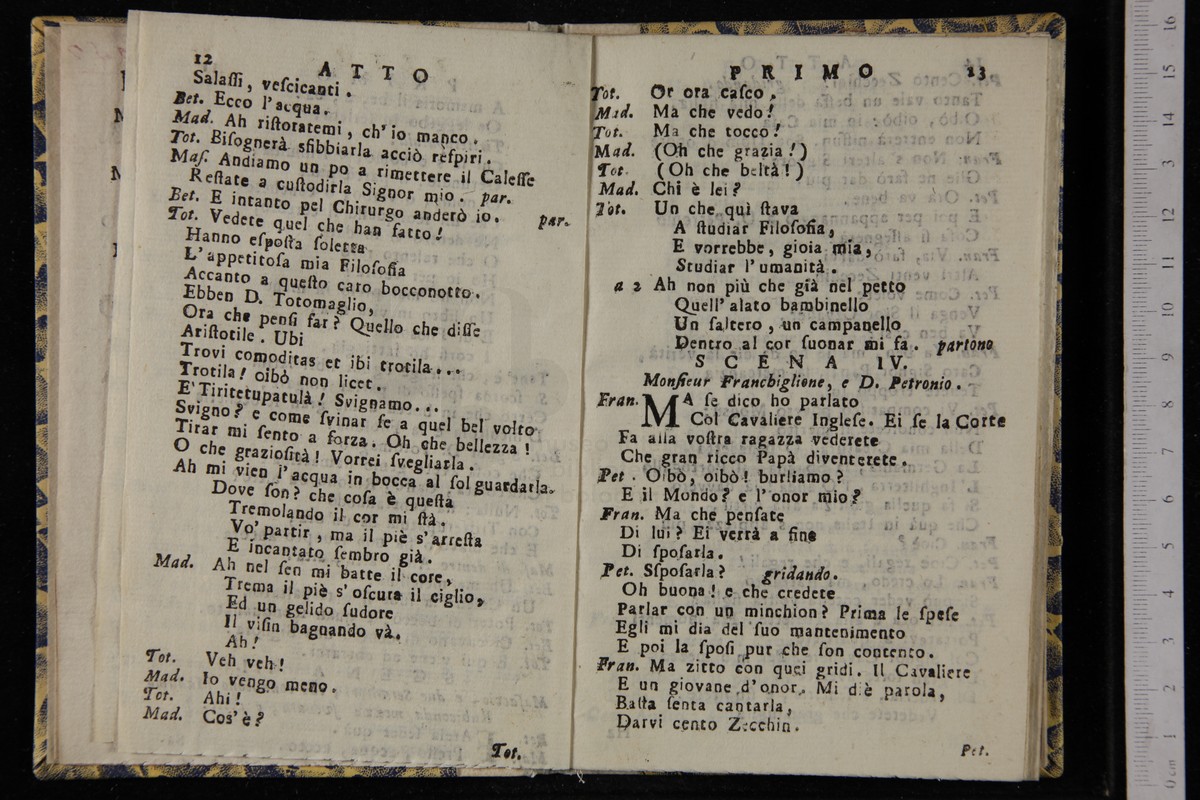 12
ATTO
Salaſſi, veſcicanti.
Bet. Ecco l'acqua.
Mad. Ah riſtoratemi, ch'io manco.
Tot. Biſognerà sfibbiarla acciò reſpiri.
Maſ. Andiamo un po a rimettere il Caleſſe
Reſtate a cuſtodirla Signor mio. par.
Bet. E intanto pel Chirurgo anderò io. par.
Tot. Vedete quel che han fatto!
Hanno eſpoſta ſoletta
L'appetitoſa mia Filoſofia
Accanto a queſto caro bocconotto.
Ebben D. Totomaglio,
Ora che penſi far? Quello che diſſe
Ariſtotile. Ubi
Trovi comoditas et ibi trotila...
Trotila! oibò non licet.
E' Tiritetupatulà! Svignamo...
Svigno? e come ſvinar ſe a quel bel volto
Tirar mi ſento a forza. Oh che bellezza!
O che grazioſità! Vorrei ſvegliarla.
Ah mi vien l'acqua in bocca al ſol guardarla.
Dove ſon? che coſa è queſta
Tremolando il cor mi ſtà.
Vo' partir, ma il piè s'arreſta
E incantato ſembro già.
Mad. Ah nel ſen mi batte il core,
Trema il piè s'oſcura il ciglio,
Ed un gelido ſudore
Il viſin bagnando và.
Ah!
Tot. Veh veh!
Mad. Io vengo meno.
Tot. Ahi!
Mad. Cos'è?
Tot.
PRIMO
13
Tot. Or ora caſco.
Mad. Ma che vedo!
Tot. Ma che tocco!
Mad. (Oh che grazia!)
Tot. (Oh che beltà!)
Mad. Chi è lei?
Tot. Un che quì ſtava
A ſtudiar Filoſofia,
E vorrebbe, gioia mia,
Studiar l'umanità.
a 2 Ah non più che già nel petto
Quell'alato bambinello
Un ſaltero, un campanello
Dentro al cor ſuonar mi fa. partono
SCENA IV.
Monſieur Franchiglione, e D. Petronio.
Fran. MA ſe dico ho parlato
Col Cavaliere Ingleſe. Ei ſe la Corte
Fa alla voſtra ragazza vederete
Che gran ricco Papà diventerete.
Pet. Oibò, oibò! burliamo?
E il Mondo? e l'onor mio?
Fran. Ma che penſate
Di lui? Ei verrà a fine
Di ſpoſarla.
Pet. Sſpoſarla? gridando.
Oh buona! e che credete
Parlar con un minchion? Prima le ſpeſe
Egli mi dia del ſuo mantenimento
E poi la ſpoſi pur che ſon contento.
Fran. Ma zitto con quei gridi. Il Cavaliere
E un giovane d'onor. Mi diè parola,
Baſta ſenta cantarla,
Darvi cento Zecchin.
Pet.